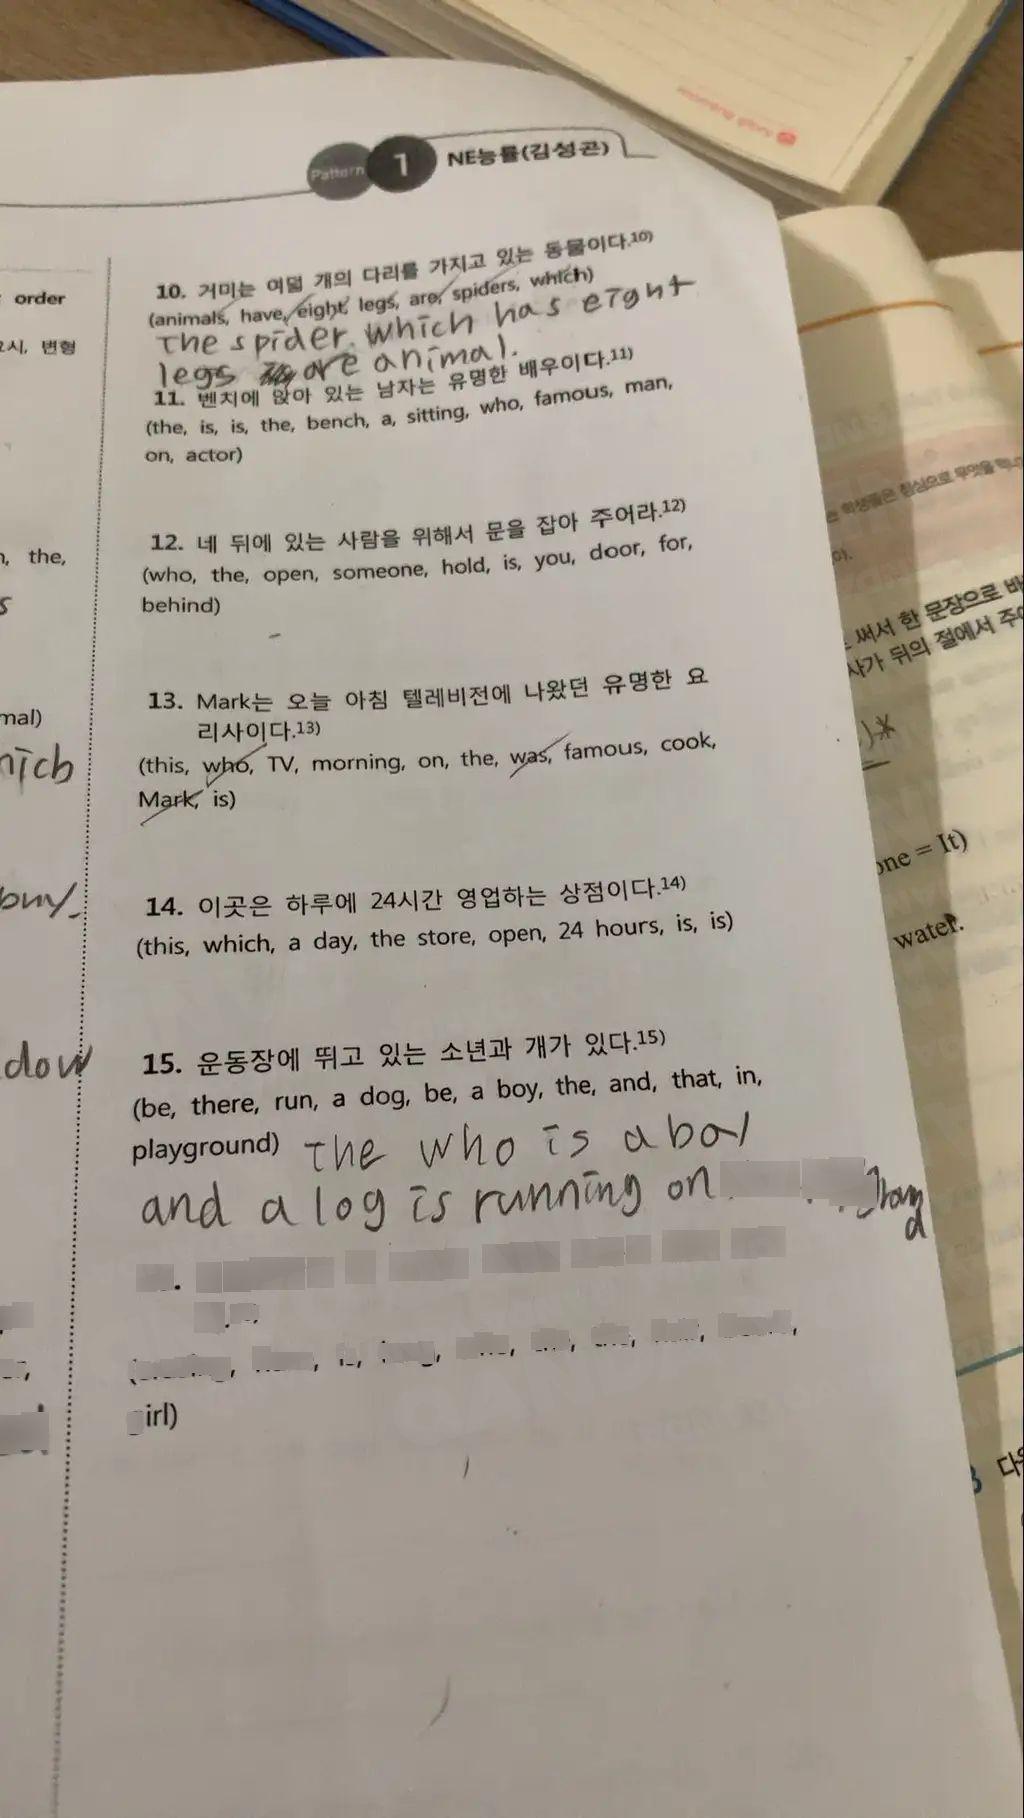 Pattern 1 NE능률(김성곤)
order
10. 거미는 여덟 개의 다리를 가지고 있는 동물이다.10)
(animals, have, eight, legs, are, spiders, which)
The spider. which has eight
legs are animal.
11. 벤치에 앉아 있는 남자는 유명한 배우이다.11)
(the, is, is, the, bench, a, sitting, who, famous, man,
on, actor)
12. 네 뒤에 있는 사람을 위해서 문을 잡아 주어라.12)
(who, the, open, someone, hold, is, you, door, for,
behind)
13. Mark는 오늘 아침 텔레비전에 나왔던 유명한 요
리사이다.13)
(this, who, TV, morning, on, the, was, famous, cook,
Mark, is)
14. 이곳은 하루에 24시간 영업하는 상점이다.14)
(this, which, a day, the store, open, 24 hours, is, is)
15. 운동장에 뛰고 있는 소년과 개가 있다.15)
(be, there, run, a dog, be, a boy, the, and, that, in,
playground)
The who is a boy
and a log is running on
irl)
the,
mal)
buy.
dow
써서 한 문장으로
뒤의 절에서
one = It)
water.